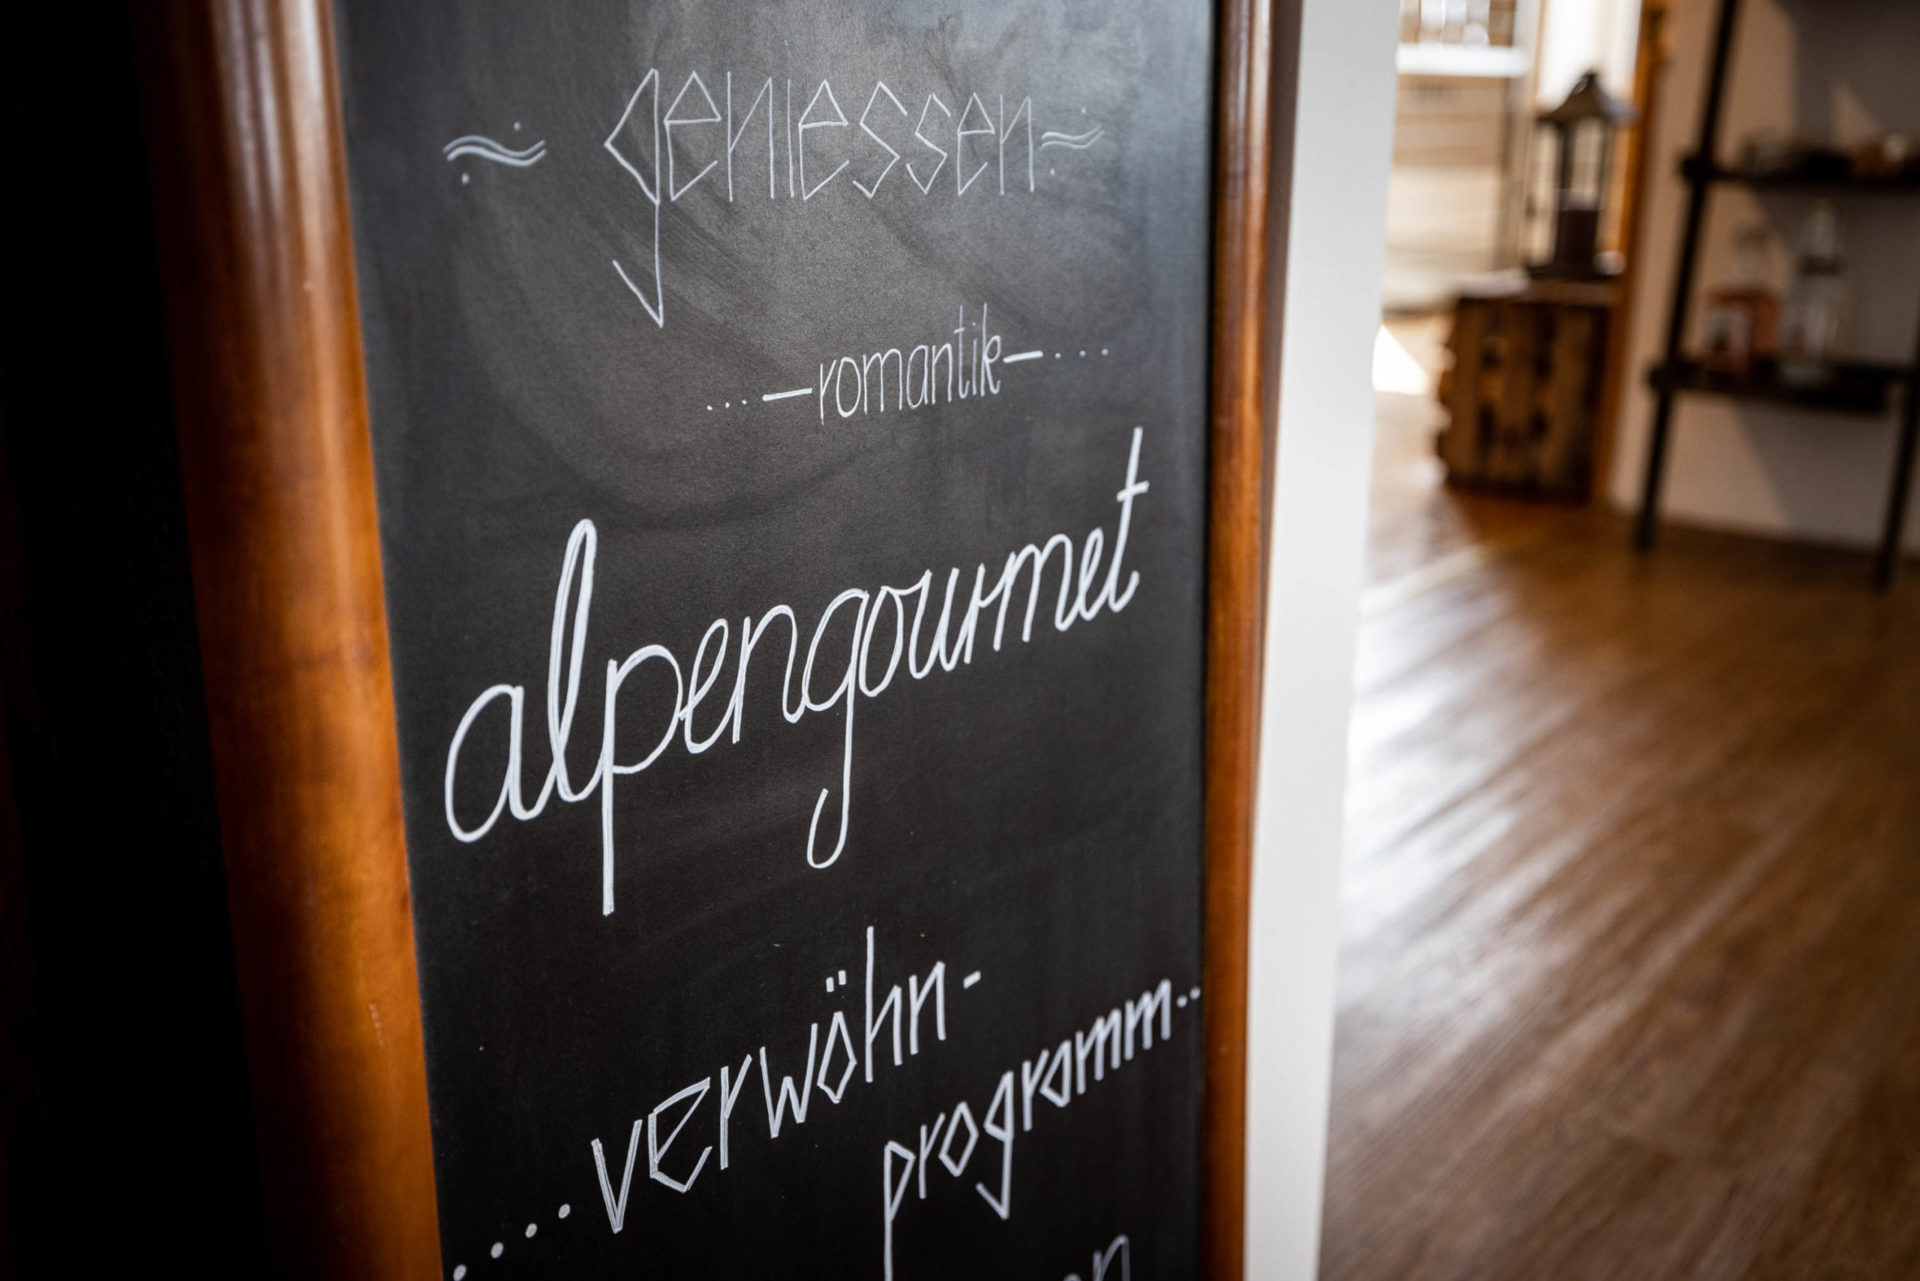 geniessen
romantik
alpengourmet
verwöhn-
programm